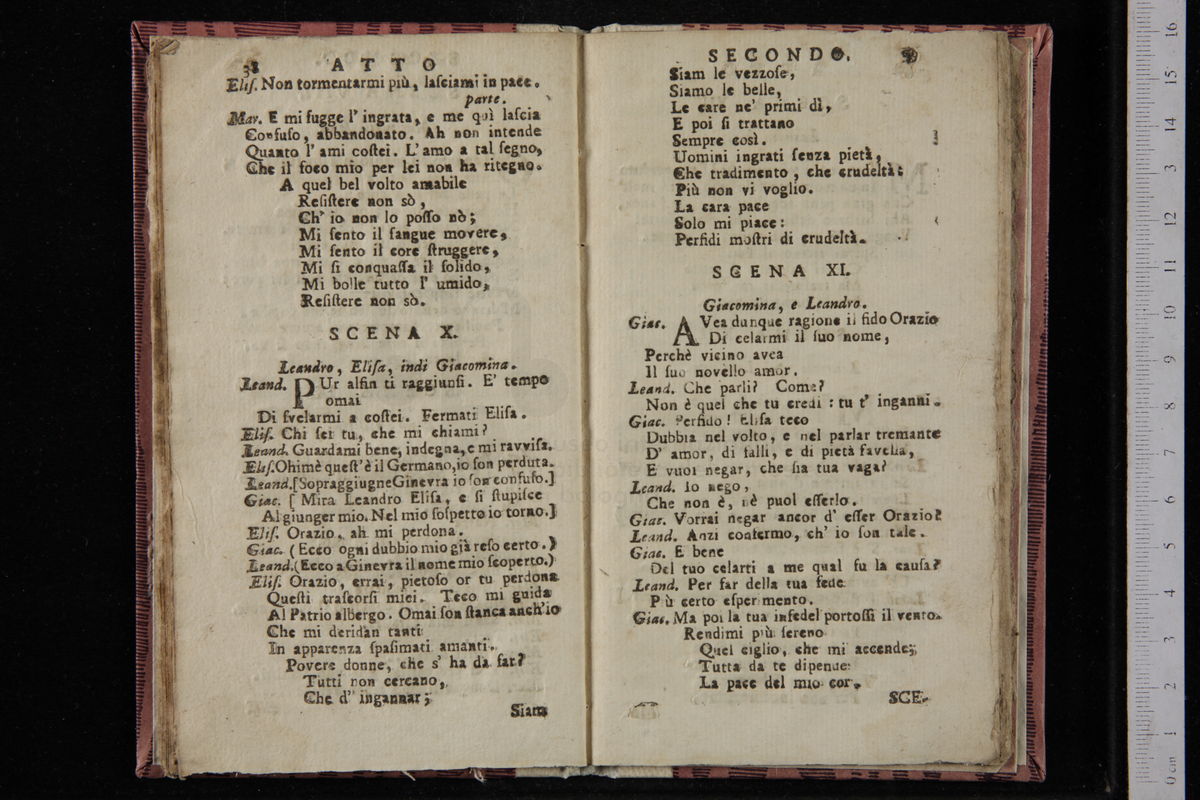 38 ATTO
Elis. Non tormentarmi più, lasciami in pace.
parte.
Mar. E mi fugge l' ingrata, e me quì lascia
Confuso, abbandonato. Ah non intende
Quanto l' ami costei. L' amo a tal segno,
Che il foco mio per lei non ha ritegno.
A quel bel volto amabile
Resistere non sò,
Ch' io non lo posso nò;
Mi sento il sangue movere,
Mi sento il core struggere,
Mi si conquassa il solido,
Mi bolle tutto l' umido,
Resistere non sò.
SCENA X.
Leandro, Elisa, indi Giacomina.
Leand. PUr alfin ti raggiunsi. E' tempo
omai
Di svelarmi a costei. Fermati Elisa.
Elis. Chi sei tu, che mi chiami?
Leand. Guardami bene, indegna, e mi ravvisa.
Elis. Ohimè quest' è il Germano, io son perduta.
Leand. [Sopraggiugne Ginevra io son confuso.]
Giac. [ Mira Leandro Elisa, e si stupisce
Al giunger mio. Nel mio sospetto io torno.]
Elis. Orazio, ah mi perdona.
Giac. (Ecco ogni dubbio mio già reso certo.)
Leand. (Ecco a Ginevra il nome mio scoperto.)
Elis. Orazio, errai, pietoso or tu perdona
Questi trascorsi miei. Teco mi guida
Al Patrio albergo. Omai son stanca anch'io
Che mi deridan tanti
In apparenza spasimati amanti.
Povere donne, che s' ha da far?
Tutti non cercano,
Che d' ingannar;
Siam
SECONDO.
Siam le vezzose,
Siamo le belle,
Le care ne' primi dì,
E poi si trattano
Sempre così.
Uomini ingrati senza pietà,
Che tradimento, che crudeltà:
Più non vi voglio.
La cara pace
Solo mi piace:
Perfidi mostri di crudeltà.
SCENA XI.
Giacomina, e Leandro.
Giac. AVea dunque ragione il fido Orazio
Di celarmi il suo nome,
Perchè vicino avea
Il suo novello amor.
Leand. Che parli? Come?
Non è quel che tu credi: tu t' inganni.
Giac. Perfido! Elisa teco
Dubbia nel volto, e nel parlar tremante
D' amor, di falli, e di pietà favella,
E vuoi negar, che sia tua vaga?
Leand. Io nego,
Che non è, nè puol esserlo.
Giac. Vorrai negar ancor d' esser Orazio?
Leand. Anzi confermo, ch' io son tale.
Giac. E bene
Del tuo celarti a me qual fu la causa?
Leand. Per far della tua fede
Più certo esperimento.
Giac. Ma poi la tua infedel portossi il vento.
Rendimi più sereno
Quel ciglio, che mi accende;
Tutta da te dipende
La pace del mio cor.
SCE-